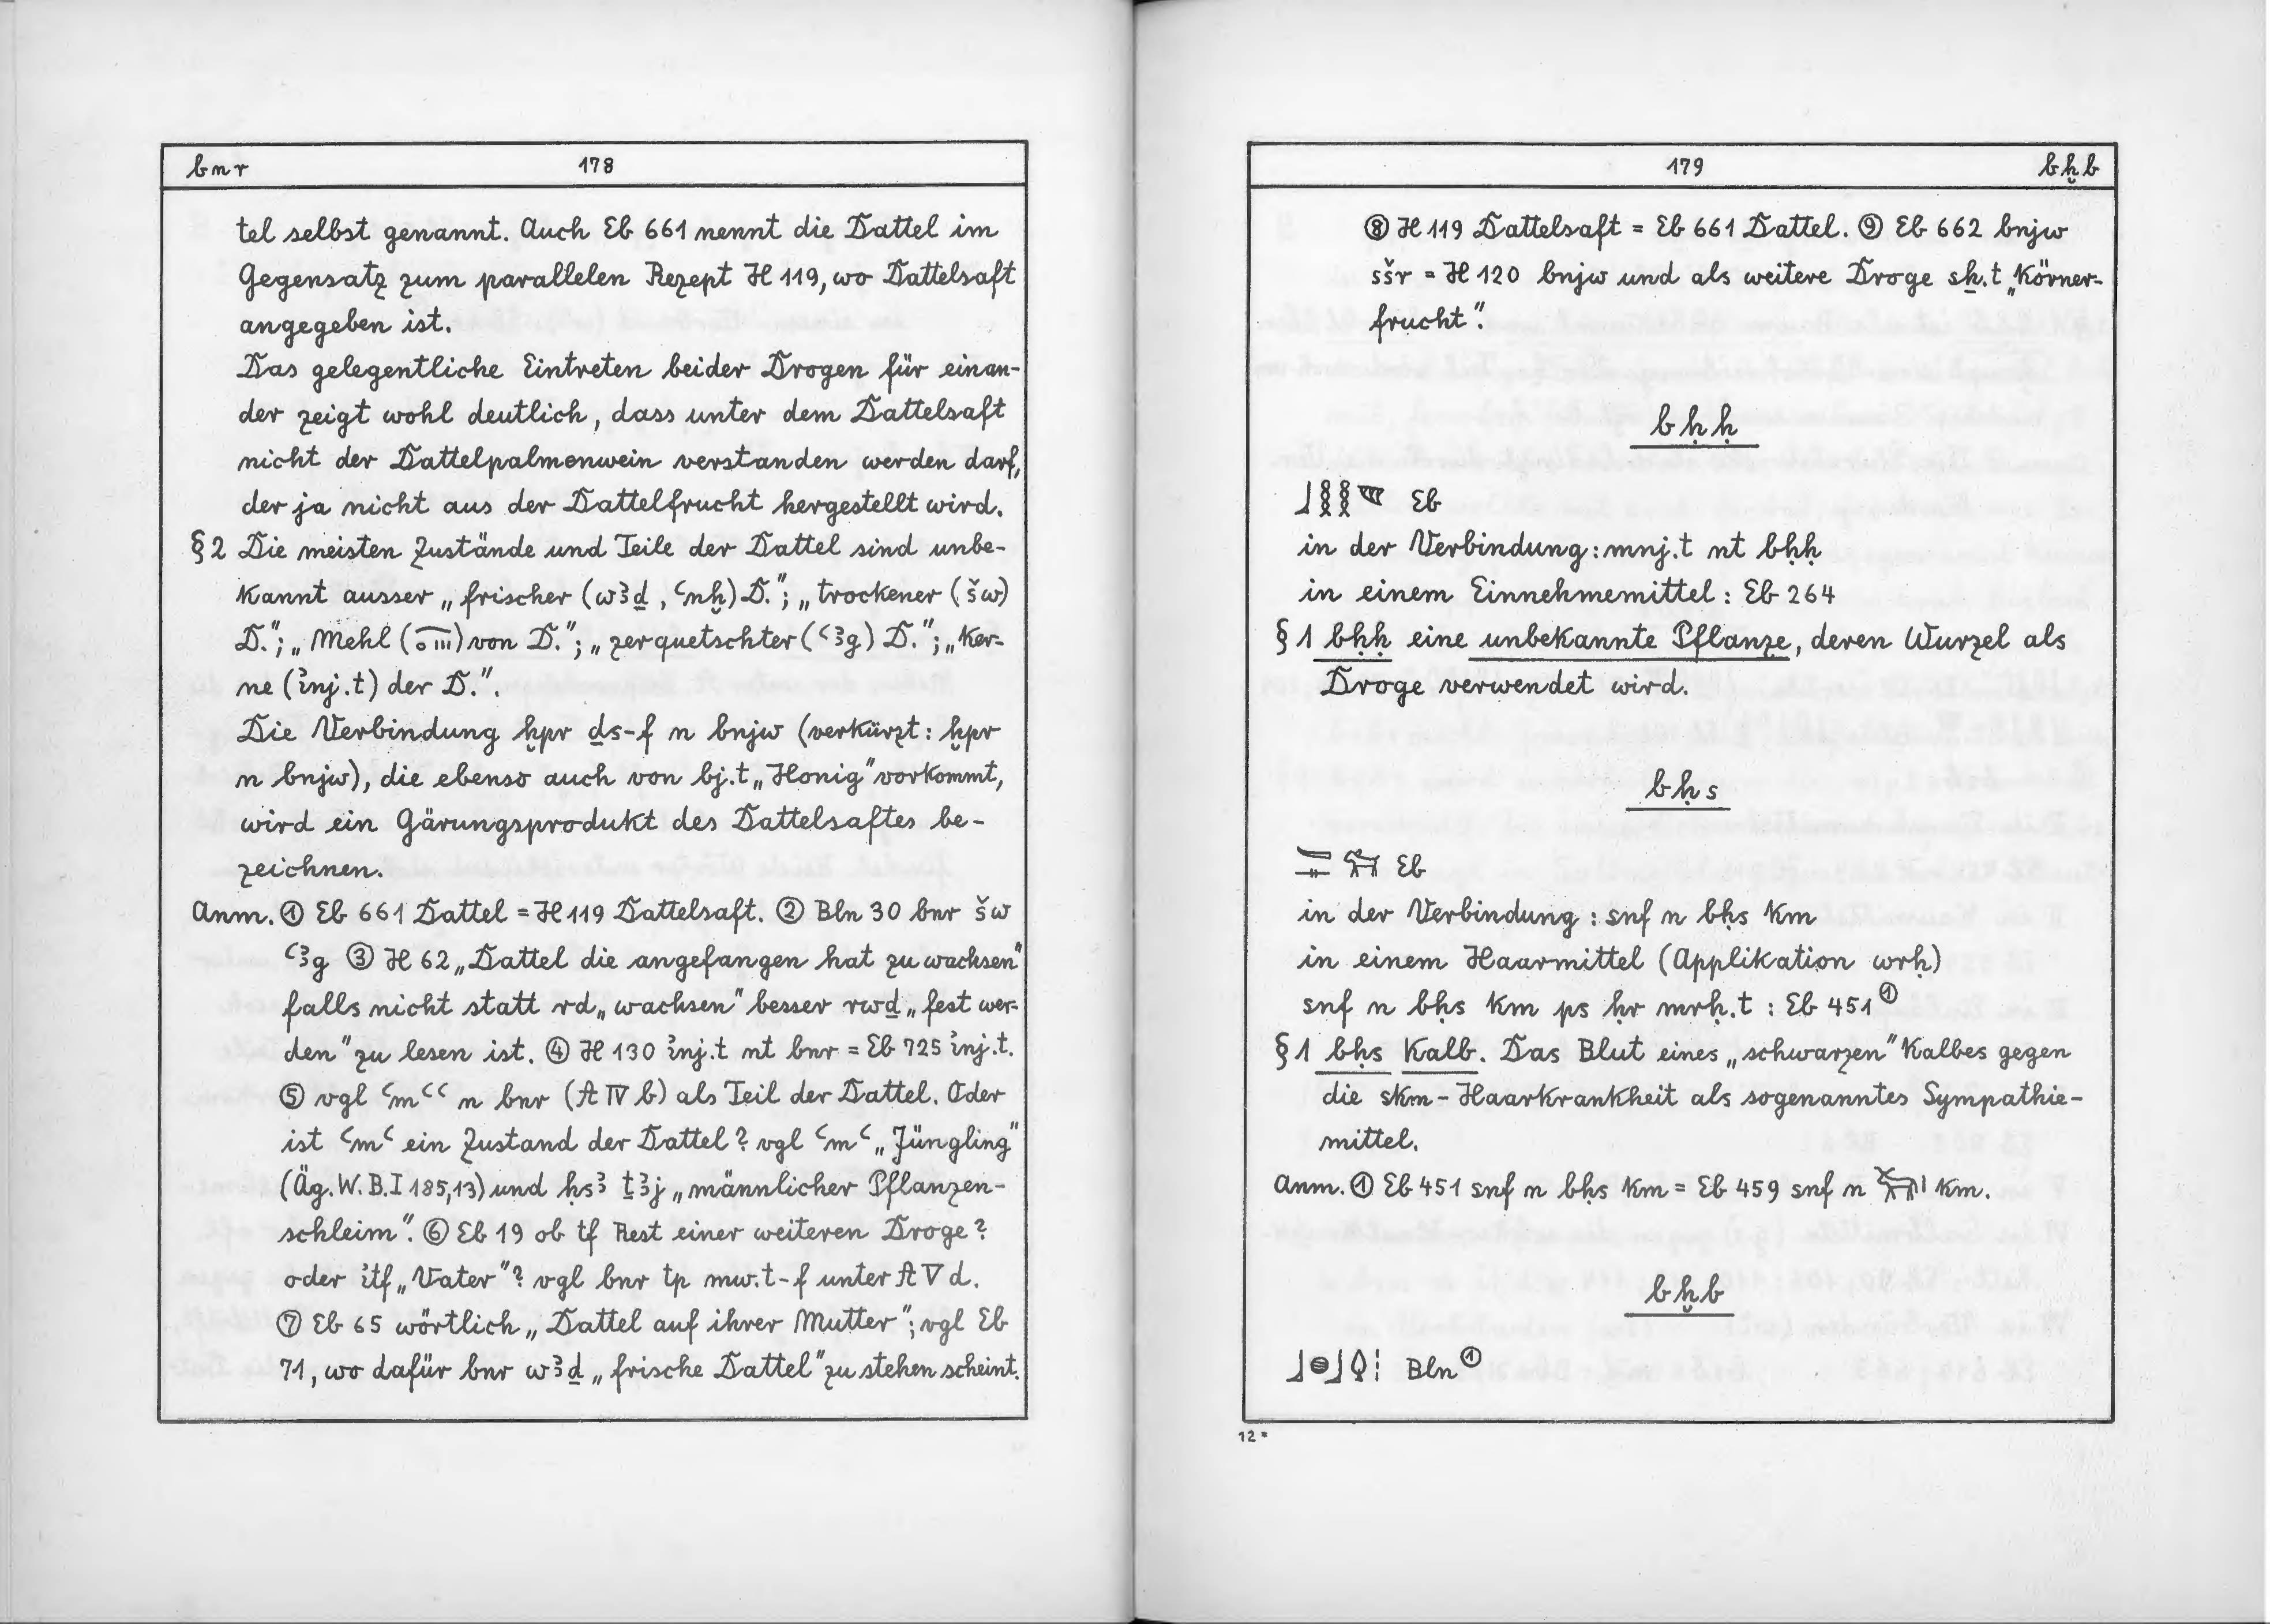 bnr 178
tel selbst genannt. Auch Eb 661 nennt die Dattel im
Gegensatz zum parallelen Rezept H 119, wo Dattelsaft
angegeben ist.
Das gelegentliche Eintreten beider Drogen für einan-
der zeigt wohl deutlich, dass unter dem Dattelsaft
nicht der Dattelpalmenwein verstanden werden darf,
der ja nicht aus der Dattelfrucht hergestellt wird.
§ 2 Die meisten Zustände und Teile der Dattel sind unbe-
kannt ausser „frischer (wꜣḏ, ꜥnḫ) D."; „trockener (šw)
D."; „Mehl () von D."; „zerquetschter (ꜥꜣg) D."; „Ker-
ne (ỉnj.t) der D.".
Die Verbindung ḫpr ḏs-f n bnjw (verkürzt: ḫpr
n bnjw), die ebenso auch von bj.t „Honig" vorkommt,
wird ein Gärungsprodukt des Dattelsaftes be-
zeichnen.
Anm. ① Eb 661 Dattel = H 119 Dattelsaft. ② Bln 30 bnr šw
ꜥꜣg ③ H 62 „Dattel die angefangen hat zu wachsen"
falls nicht statt rd „wachsen" besser rwḏ „fest wer-
den" zu lesen ist. ④ H 130 ỉnj.t nt bnr = Eb 725 ỉnj.t.
⑤ vgl ꜥmꜥꜥ n bnr (A IV b) als Teil der Dattel. Oder
ist ꜥmꜥ ein Zustand der Dattel? vgl ꜥmꜥ „Jüngling"
(Äg. W. B. I 185,13) und ḥsꜣ ṯꜣj „männlicher Pflanzen-
schleim". ⑥ Eb 19 ob tf Rest einer weiteren Droge?
oder ỉtf „Vater"? vgl bnr tp mw.t-f unter A V d.
⑦ Eb 65 wörtlich „Dattel auf ihrer Mutter"; vgl Eb
71, wo dafür bnr wꜣḏ „frische Dattel" zu stehen scheint.
179 bḫb
⑧ H 119 Dattelsaft = Eb 661 Dattel. ⑨ Eb 662 bnjw
sšr = H 120 bnjw und als weitere Droge sẖ.t „Körner-
frucht".
bḥḥ
𓃀𓎛𓎛𓄑 Eb
in der Verbindung: mnj.t nt bḥḥ
in einem Einnehmemittel: Eb 264
§ 1 bḥḥ eine unbekannte Pflanze, deren Wurzel als
Droge verwendet wird.
bḥs
𓄑𓊃𓃔 Eb
in der Verbindung: snf n bḥs km
in einem Haarmittel (Applikation wrḥ)
snf n bḥs km ps ḥr mrḥ.t: Eb 451①
§ 1 bḥs Kalb. Das Blut eines „schwarzen" Kalbes gegen
die skm-Haarkrankheit als sogenanntes Sympathie-
mittel.
Anm. ① Eb 451 snf n bḥs km = Eb 459 snf n km.
bḫb
𓃀𓐍𓃀𓆭 Bln①
12*